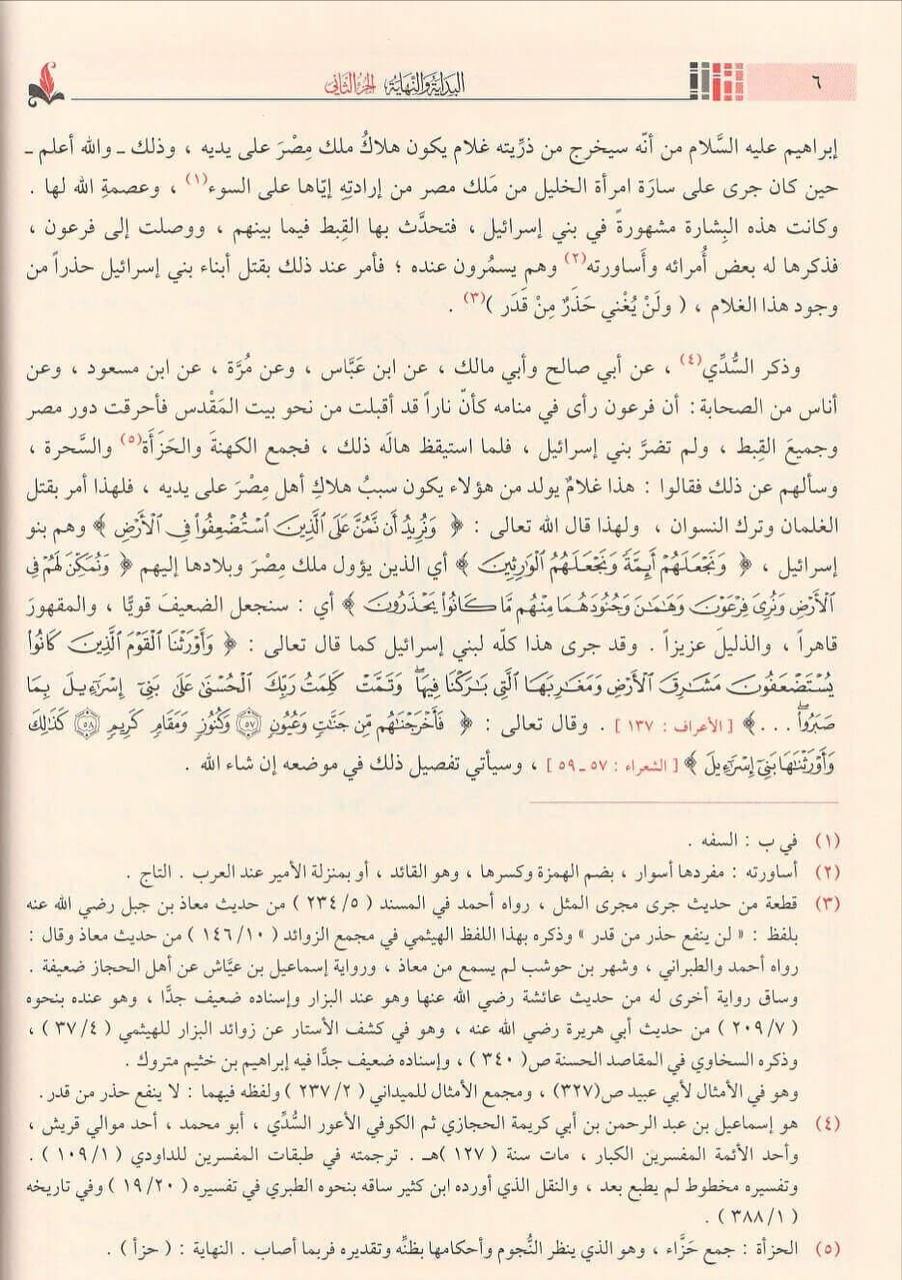 ٦
البداية والنهاية الجزء الثاني
إبراهيم عليه السَّلام من أنّه سيخرج من ذرِّيته غلام يكون هلاكُ ملك مِصْرَ على يديه ، وذلك ـ والله أعلم ـ
حين كان جرى على سارَة امرأة الخليل من مَلك مصر من إرادتِهِ إيَّاها على السوء(١) ، وعصمةِ الله لها .
وكانت هذه البِشارة مشهورةً في بني إسرائيل ، فتحدَّث بها القِبط فيما بينهم ، ووصلت إلى فرعون ،
فذكرها له بعض أُمرائه وأَساورته(٢) وهم يسمُرون عنده ؛ فأمر عند ذلك بقتل أبناء بني إسرائيل حذراً من
وجود هذا الغلام ، ( ولَنْ يُغْني حَذَرٌ مِنْ قَدَر )(٣) .
وذكر السُّدِّي(٤) ، عن أبي صالح وأبي مالك ، عن ابن عَبَّاس ، وعن مُرَّة ، عن ابن مسعود ، وعن
أناس من الصحابة : أن فرعون رأى في منامه كأنّ ناراً قد أقبلت من نحو بيت المَقْدس فأحرقت دور مصر
وجميعَ القِبط ، ولم تضرَّ بني إسرائيل ، فلما استيقظ هالَه ذلك ، فجمع الكهنةَ والحَزَأَة(٥) والسَّحرة ،
وسألهم عن ذلك فقالوا : هذا غلامٌ يولد من هؤلاء يكون سببُ هلاكِ أهل مِصْرَ على يديه ، فلهذا أمر بقتل
الغلمان وترك النسوان ، ولهذا قال الله تعالى : ﴿ وَنُرِيدُ أَن نَّمُنَّ عَلَى ٱلَّذِينَ ٱسْتُضْعِفُوا۟ فِى ٱلْأَرْضِ ﴾ وهم بنو
إسرائيل ، ﴿ وَنَجْعَلَهُمْ أَئِمَّةً وَنَجْعَلَهُمُ ٱلْوَٰرِثِينَ ﴾ أي الذين يؤول ملك مِصْرَ وبلادها إليهم ﴿ وَنُمَكِّنَ لَهُمْ فِى
ٱلْأَرْضِ وَنُرِىَ فِرْعَوْنَ وَهَٰمَٰنَ وَجُنُودَهُمَا مِنْهُم مَّا كَانُوا۟ يَحْذَرُونَ ﴾ أي : سنجعل الضعيفَ قويًّا ، والمقهورَ
قاهراً ، والذليلَ عزيزاً . وقد جرى هذا كلّه لبني إسرائيل كما قال تعالى : ﴿ وَأَوْرَثْنَا ٱلْقَوْمَ ٱلَّذِينَ كَانُوا۟
يُسْتَضْعَفُونَ مَشَٰرِقَ ٱلْأَرْضِ وَمَغَٰرِبَهَا ٱلَّتِى بَٰرَكْنَا فِيهَا ۖ وَتَمَّتْ كَلِمَتُ رَبِّكَ ٱلْحُسْنَىٰ عَلَىٰ بَنِىٓ إِسْرَٰٓءِيلَ بِمَا
صَبَرُوا۟ ۖ . . . ﴾ [ الأعراف : ١٣٧ ] . وقال تعالى : ﴿ فَأَخْرَجْنَٰهُم مِّن جَنَّٰتٍ وَعُيُونٍ ٥٧ وَكُنُوزٍ وَمَقَامٍ كَرِيمٍ ٥٨ كَذَٰلِكَ
وَأَوْرَثْنَٰهَا بَنِىٓ إِسْرَٰٓءِيلَ ﴾ [ الشعراء : ٥٧ ـ ٥٩ ] ، وسيأتي تفصيل ذلك في موضعه إن شاء الله .
(١) في ب : السفه .
(٢) أساورته : مفردها أسوار ، بضم الهمزة وكسرها ، وهو القائد ، أو بمنزلة الأمير عند العرب . التاج .
(٣) قطعة من حديث جرى مجرى المثل ، رواه أحمد في المسند ( ٥/ ٢٣٤ ) من حديث معاذ بن جبل رضي الله عنه
بلفظ : « لن ينفع حذر من قدر » وذكره بهذا اللفظ الهيثمي في مجمع الزوائد ( ١٠/ ١٤٦ ) من حديث معاذ وقال :
رواه أحمد والطبراني ، وشهر بن حوشب لم يسمع من معاذ ، ورواية إسماعيل بن عيَّاش عن أهل الحجاز ضعيفة .
وساق رواية أخرى له من حديث عائشة رضي الله عنها وهو عند البزار وإسناده ضعيف جدًّا ، وهو عنده بنحوه
( ٧/ ٢٠٩ ) من حديث أبي هريرة رضي الله عنه ، وهو في كشف الأستار عن زوائد البزار للهيثمي ( ٤/ ٣٧ ) ،
وذكره السخاوي في المقاصد الحسنة ص( ٣٤٠ ) ، وإسناده ضعيف جدًّا فيه إبراهيم بن خثيم متروك .
وهو في الأمثال لأبي عبيد ص(٣٢٧) ، ومجمع الأمثال للميداني ( ٢/ ٢٣٧ ) ولفظه فيهما : لا ينفع حذر من قدر.
(٤) هو إسماعيل بن عبد الرحمن بن أبي كريمة الحجازي ثم الكوفي الأعور السُّدِّي ، أبو محمد ، أحد موالي قريش ،
وأحد الأئمة المفسرين الكبار ، مات سنة ( ١٢٧ )هـ . ترجمته في طبقات المفسرين للداودي ( ١/ ١٠٩ ) .
وتفسيره مخطوط لم يطبع بعد ، والنقل الذي أورده ابن كثير ساقه بنحوه الطبري في تفسيره ( ٢٠/ ١٩ ) وفي تاريخه
( ١/ ٣٨٨ ) .
(٥) الحزأة : جمع حَزَّاء ، وهو الذي ينظر النُّجوم وأحكامها بظنِّه وتقديره فربما أصاب . النهاية : ( حزأ ) .